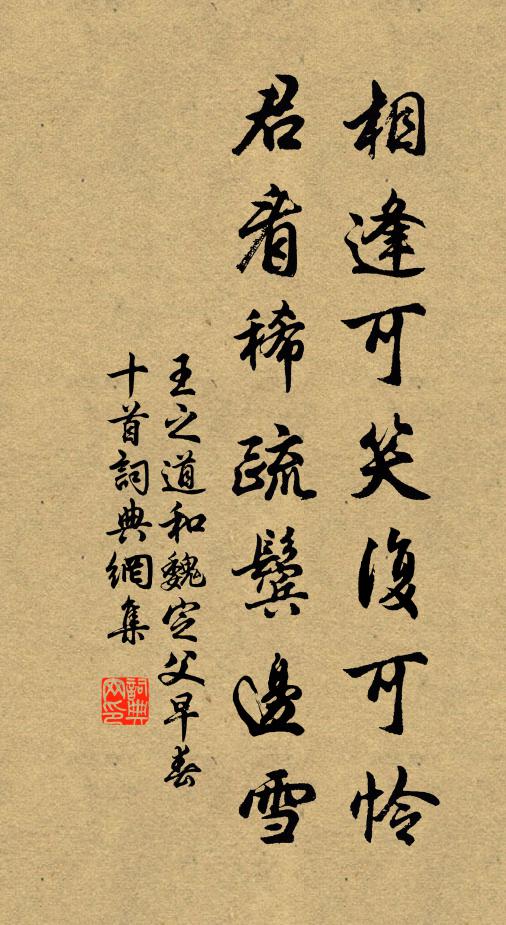 相逢可笑復可怜
君看稀疏鬓邊雪
王之道和魏定父早春
十首詞典網集
詞典
网印